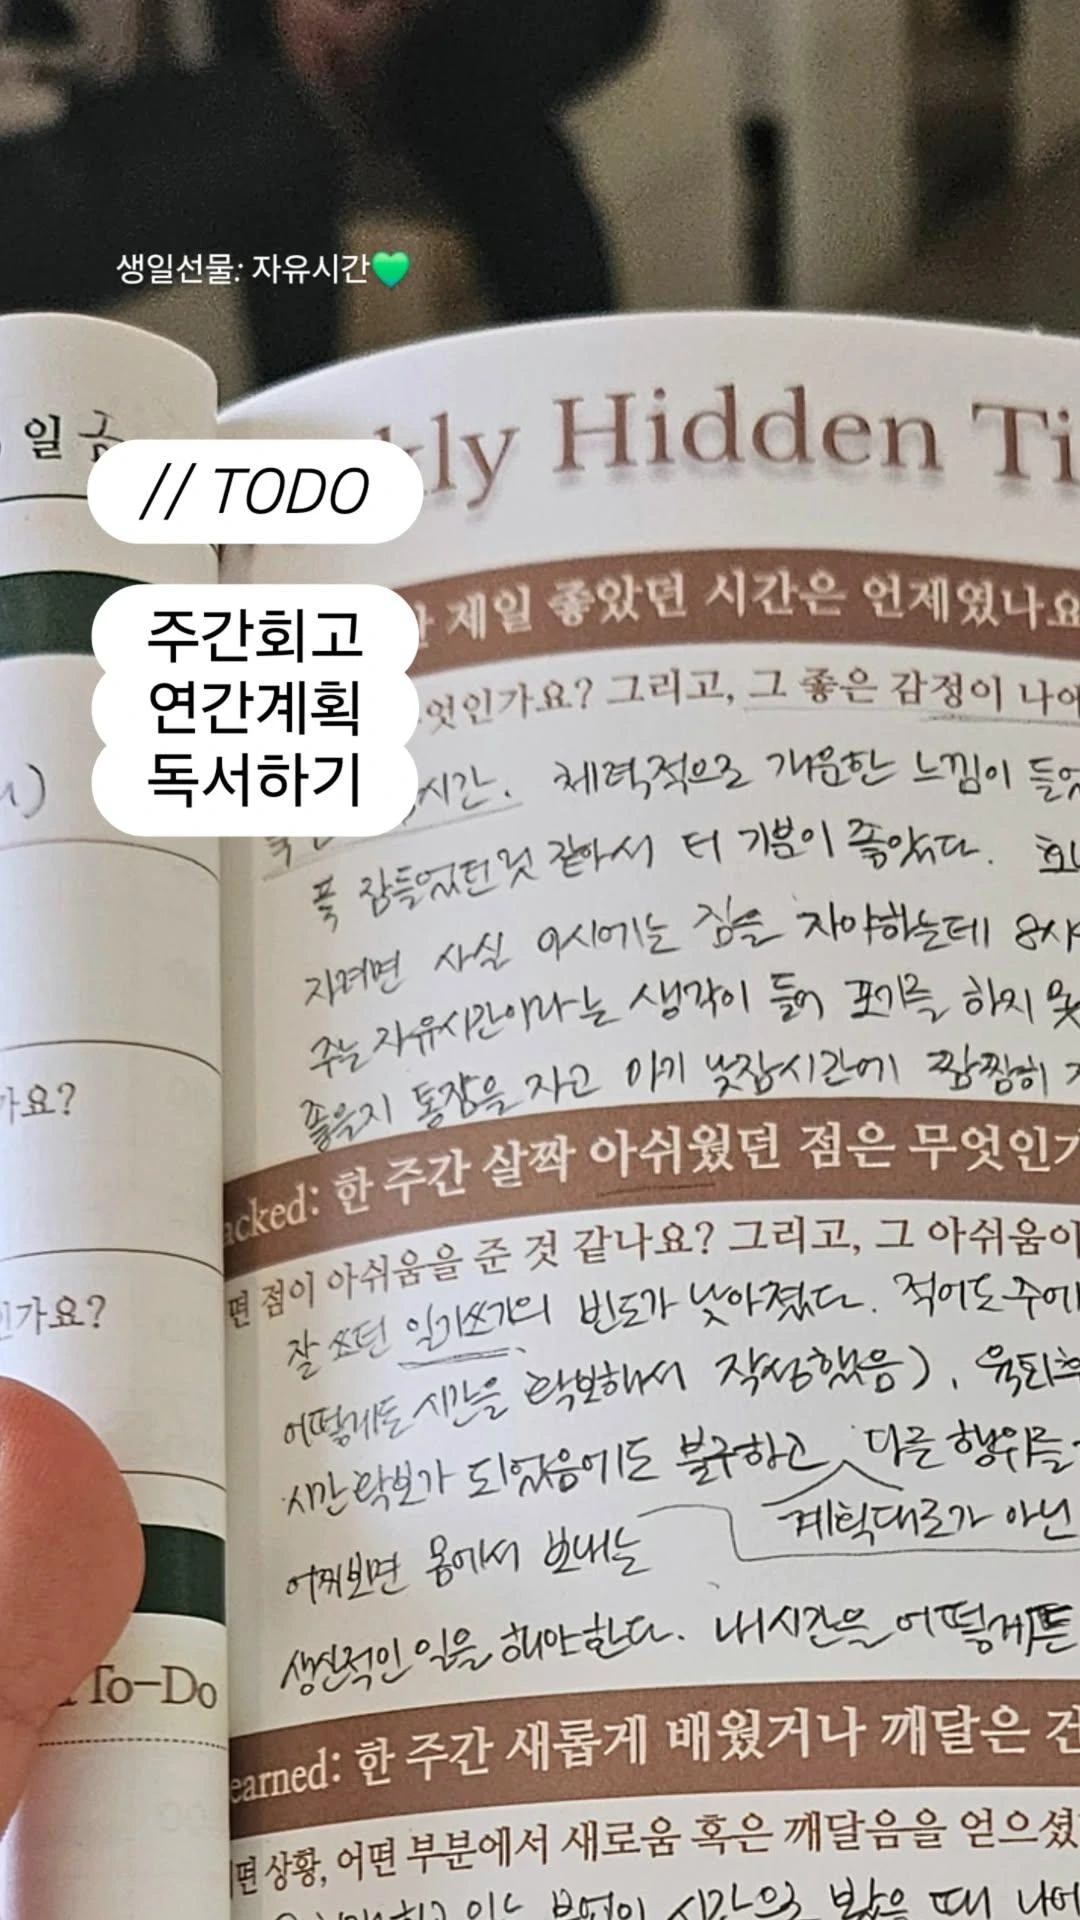 생일선물: 자유시간💚
일 금
// TODO
주간회고
연간계획
독서하기
kly Hidden Ti
제일 좋았던 시간은 언제였나요
엇인가요? 그리고, 그 좋은 감정이 나에
시간. 체력적으로 개운한 느낌이 들었
푹 잠들었던것 같아서 더 기분이 좋았다.
자려면 사실 9시에는 잠을 자야하는데 8시
주는 자유시간이라는 생각이 들어 포기를 하지 못
좋을지 통잠을 자고 아기 낮잠시간에 짬짬히
가요?
acked: 한 주간 살짝 아쉬웠던 점은 무엇인가
떤 점이 아쉬움을 준 것 같나요? 그리고, 그 아쉬움이
인가요?
잘 쓰던 일기쓰기의 빈도가 낮아졌다. 적어도 주에
어떻게든 시간을 확보해서 작성했음). 육퇴후
시간 확보가 되었음에도 불구하고 다른 행위를
계획대로가 아닌
어찌보면 몸에서 보내는
생산적인 일을 해야한다. 내 시간을 어떻게든
To-Do
earned: 한 주간 새롭게 배웠거나 깨달은 건
떤 상황, 어떤 부분에서 새로움 혹은 깨달음을 얻으셨
시간으로 봤을 때 나에